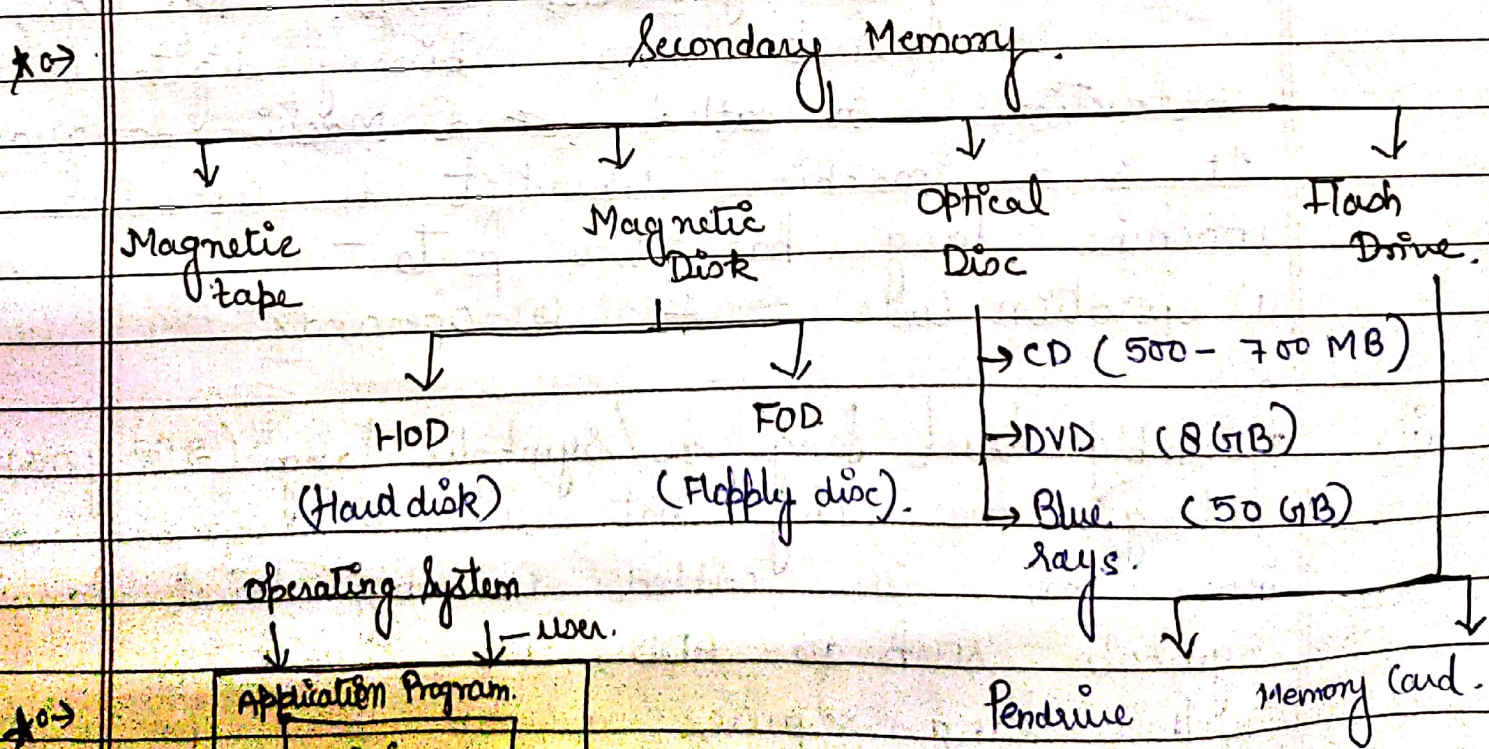 Secondary Memory.
Magnetic tape
Magnetic Disk
Optical Disc
Flash Drive.
HOD
(Hard disk)
FOD
(Flopply disc).
→ CD (500 - 700 MB)
→ DVD (8 GB)
→ Blue rays. (50 GB)
Pendrive
Memory Card.
Operating System
- User.
Application Program.